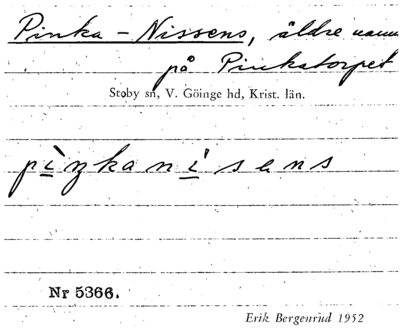 Pinka - Nissens, äldre namn
på Pinkatorpet
Stoby sn, V. Göinge hd, Krist. län.
pìŋkanìsens
Nr 5366.
Erik Bergenrud 1952